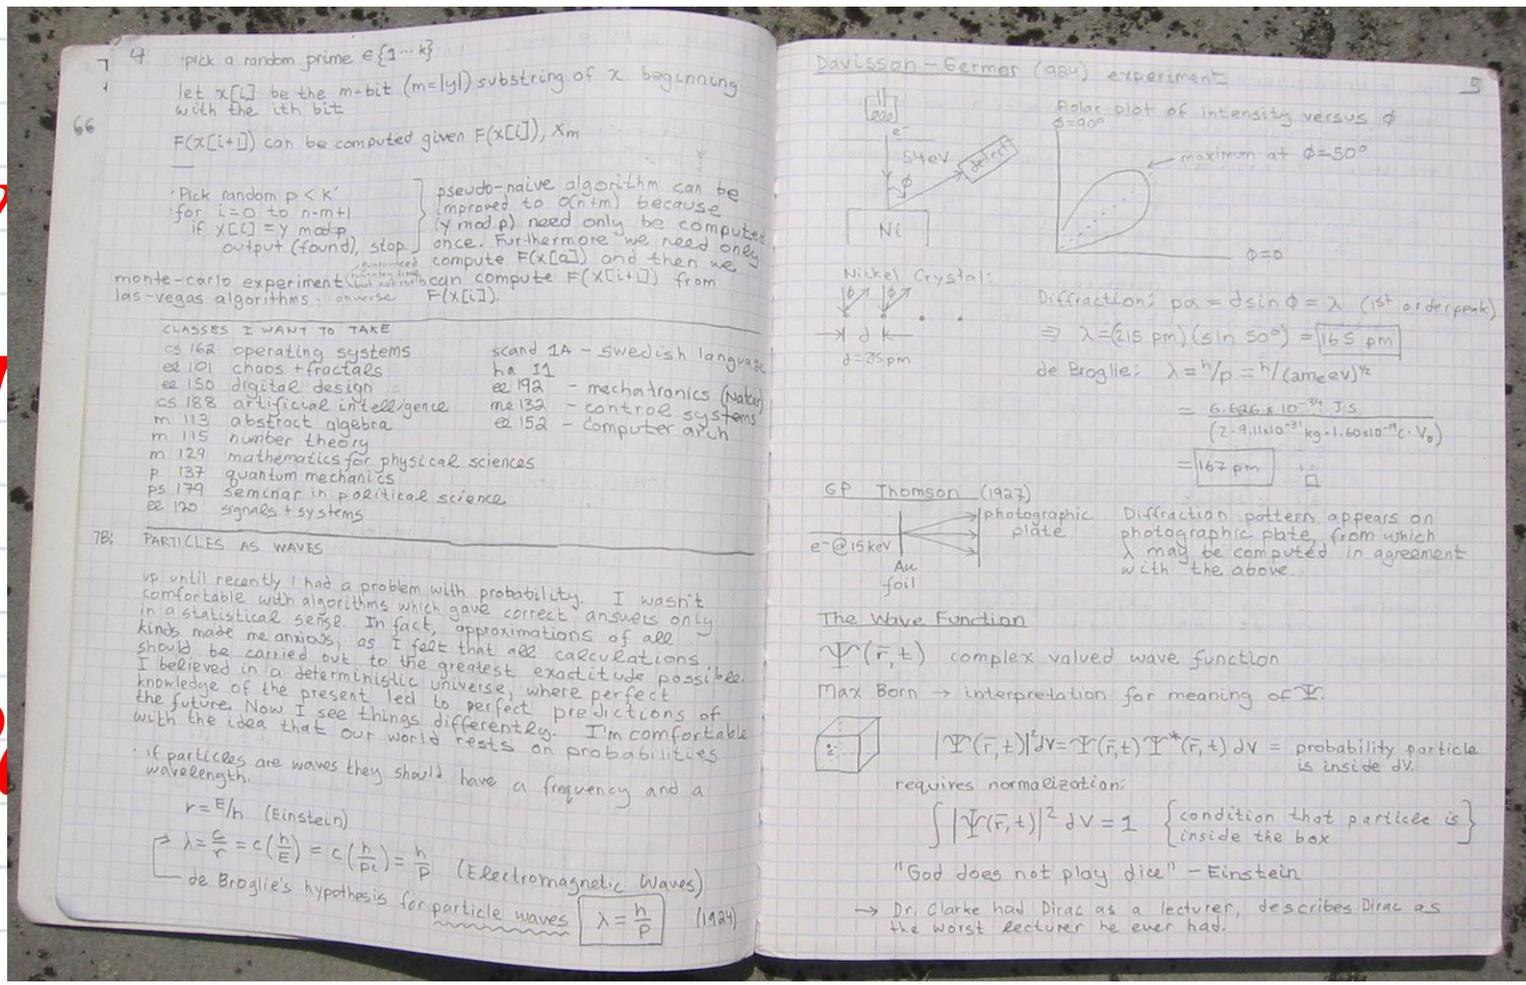 4
pick a random prime ∈ {1...k}
let x[i] be the m-bit (m=|y|) substring of x beginning
with the ith bit
66
F(x[i+1]) can be computed given F(x[i]), Xm
Pick random p < k
for i=0 to n-m+1
if x[i] = y mod p
output (found), stop.
pseudo-naive algorithm can be
improved to O(n+m) because
(y mod p) need only be computed
once. Furthermore we need only
compute F(x[0]) and then we
can compute F(x[i+1]) from
F(x[i]).
monte-carlo experiment
las-vegas algorithms converse
CLASSES I WANT TO TAKE
cs 162 operating systems
ee 101 chaos + fractals
ee 150 digital design
cs 188 artificial intelligence
m 113 abstract algebra
m 115 number theory
m 129 mathematics for physical sciences
p 137 quantum mechanics
ps 179 seminar in political science
ee 120 signals + systems
scand 1A - swedish language
ha I1
ee 192 - mechatronics
me 132 - control systems
ee 152 - computer arch
7B: PARTICLES AS WAVES
up until recently I had a problem with probability. I wasn't
comfortable with algorithms which gave correct answers only
in a statistical sense. In fact, approximations of all
kinds made me anxious, as I felt that all calculations
should be carried out to the greatest exactitude possible.
I believed in a deterministic universe, where perfect
knowledge of the present led to perfect predictions of
the future. Now I see things differently. I'm comfortable
with the idea that our world rests on probabilities
· if particles are waves they should have a frequency and a
wavelength.
r = E/h (Einstein)
λ = c/r = c(h/E) = c(h/pc) = h/p (Electromagnetic Waves)
de Broglie's hypothesis for particle waves λ = h/p (1924)
5
Davisson-Germer (1924) experiment
e-
54eV
detect
φ
Ni
Polar plot of intensity versus φ
φ=90°
maximum at φ=50°
φ=0
Nickel Crystal:
φ φ
d
d=215pm
Diffraction: pd = d sin φ = λ (1st order peak)
⇒ λ = (215 pm)(sin 50°) = 165 pm
de Broglie: λ = h/p = h/(2meeV)^½
= 6.626 x 10⁻³⁴ J·S
(2·9.11x10⁻³¹ kg·1.60x10⁻¹⁹C·V₀)
= 167 pm
GP Thomson (1927)
e-@15keV
Au
foil
photographic
plate
Diffraction pattern appears on
photographic plate, from which
λ may be computed in agreement
with the above.
The Wave Function
Ψ(r̄,t) complex valued wave function
Max Born → interpretation for meaning of Ψ.
e-
|Ψ(r̄,t)|²dV = Ψ(r̄,t) Ψ*(r̄,t) dV = probability particle
is inside dV.
requires normalization:
∫|Ψ(r̄,t)|² dV = 1 {condition that particle is
inside the box}
"God does not play dice" - Einstein
→ Dr. Clarke had Dirac as a lecturer, describes Dirac as
the worst lecturer he ever had.